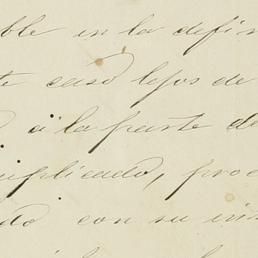 ble en la defin
te caso lejos de
á la parte de
uplicado, proc
do con su in